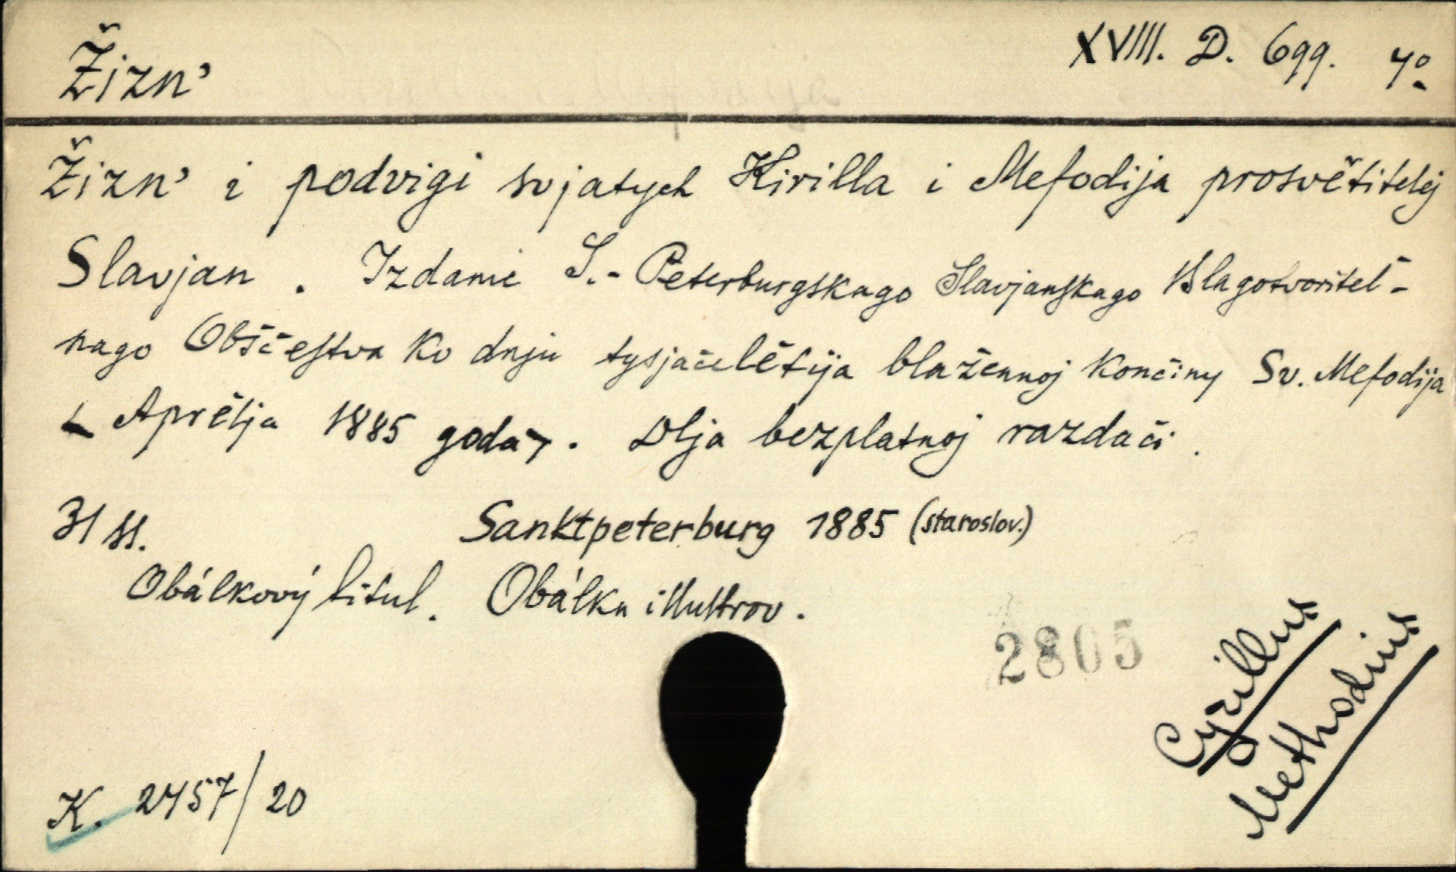 Žizn'
XVIII. D. 699. 4°
Žizn' i podvigi svjatych Kirilla i Mefodija prosvětitelej
Slavjan. Izdanie S.-Peterburgskago Slavjanskago Blagotvoritel'-
nago Obščestva ko dnju tysjačelětija blažennoj končiny Sv. Mefodija
6 Aprělja 1885 goda. Dlja bezplatnoj razdači.
31 ss. Sanktpeterburg 1885 (staroslov.)
Obálkový titul. Obálka illustrov.
2805
Cyrillus
Methodius
K. 2757/20